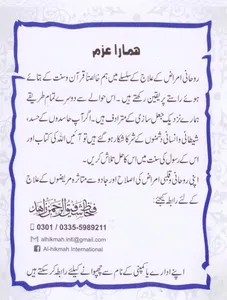 ہمارا عزم
روحانی امراض کے علاج کے سلسلے میں ہم خالصتاً قرآن و سنت کے بتائے
ہوئے راستے پر یقین رکھتے ہیں۔ اس حوالے سے دوسرے تمام طریقے
ہمارے نزدیک جعل سازی کے مترادف ہیں۔ اگر آپ حاسدوں کے حسد،
شیطانی و انسانی دشمنوں کے شر کا شکار ہو گئے ہیں تو آئیں اللہ کی کتاب اور
اس کے رسول کی سنت میں اس کا حل تلاش کریں۔
اپنی روحانی و قلبی امراض کی اصلاح اور جادو سے متاثرہ مریضوں کے علاج
کے لئے رابطہ کیجئے:
0301 / 0335-5989211
alhikmah.intl@gmail.com
Al-hikmah International
اپنے ادارے یا کمپنی کے نام سے چھپوانے کیلئے رابطہ کر سکتے ہیں